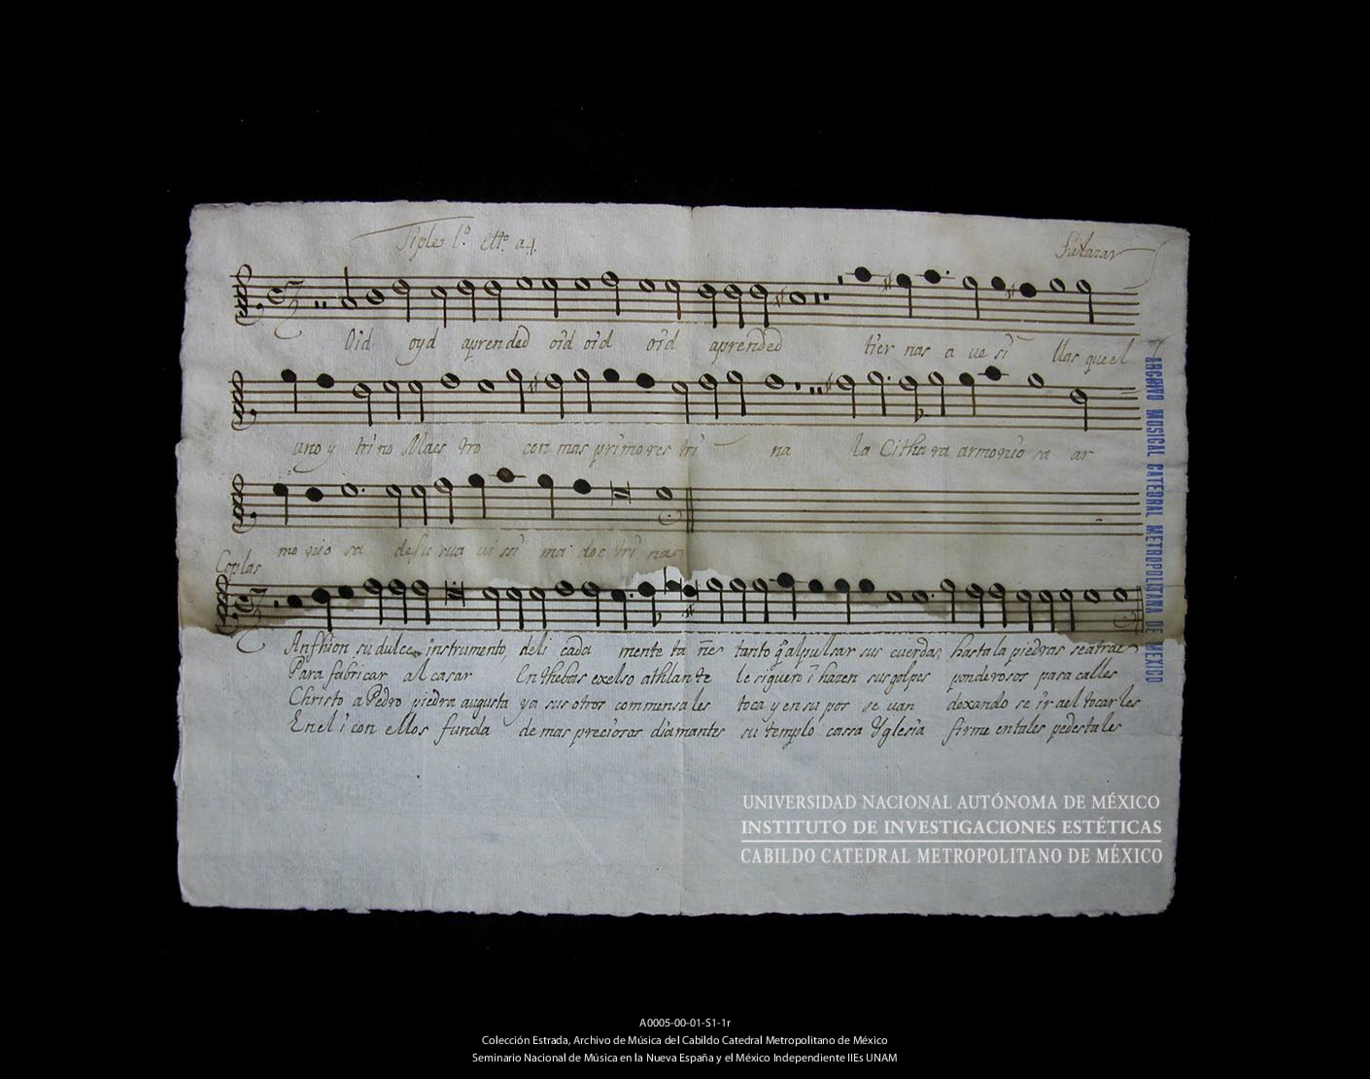 Tiple 1.º Ett.º a 4.
Salazar
Oid oyd aprended oid oid oid aprended tier nas a ve si llas que el
uno y tri no Maes tro con mas primores tri na la Cithara armonio sa ar
mo nio sa de su sua vi ssi ma doc tri na
Coplas
Anfhion su dulce instrumento, deli cada mente ta ñe tanto q̃ al pulsar sus cuerdas, hasta la piedras se atrae
Para fabricar al casar En thebas exelso athlan te le siguen i hazen sus golpes ponderosos para calles
Christo a Pedro piedra augusta ya sus otros commensa les toca y en su pos se van dexando se ir a el tocar les
En el i con ellos funda de mas preciosos diamantes su templo cassa Yglesia firme en tales pedestales
ARCHIVO MUSICAL CATEDRAL METROPOLITANA DE MEXICO
UNIVERSIDAD NACIONAL AUTÓNOMA DE MÉXICO
INSTITUTO DE INVESTIGACIONES ESTÉTICAS
CABILDO CATEDRAL METROPOLITANO DE MÉXICO
A0005-00-01-S1-1r
Colección Estrada, Archivo de Música del Cabildo Catedral Metropolitano de México
Seminario Nacional de Música en la Nueva España y el México Independiente IIEs UNAM